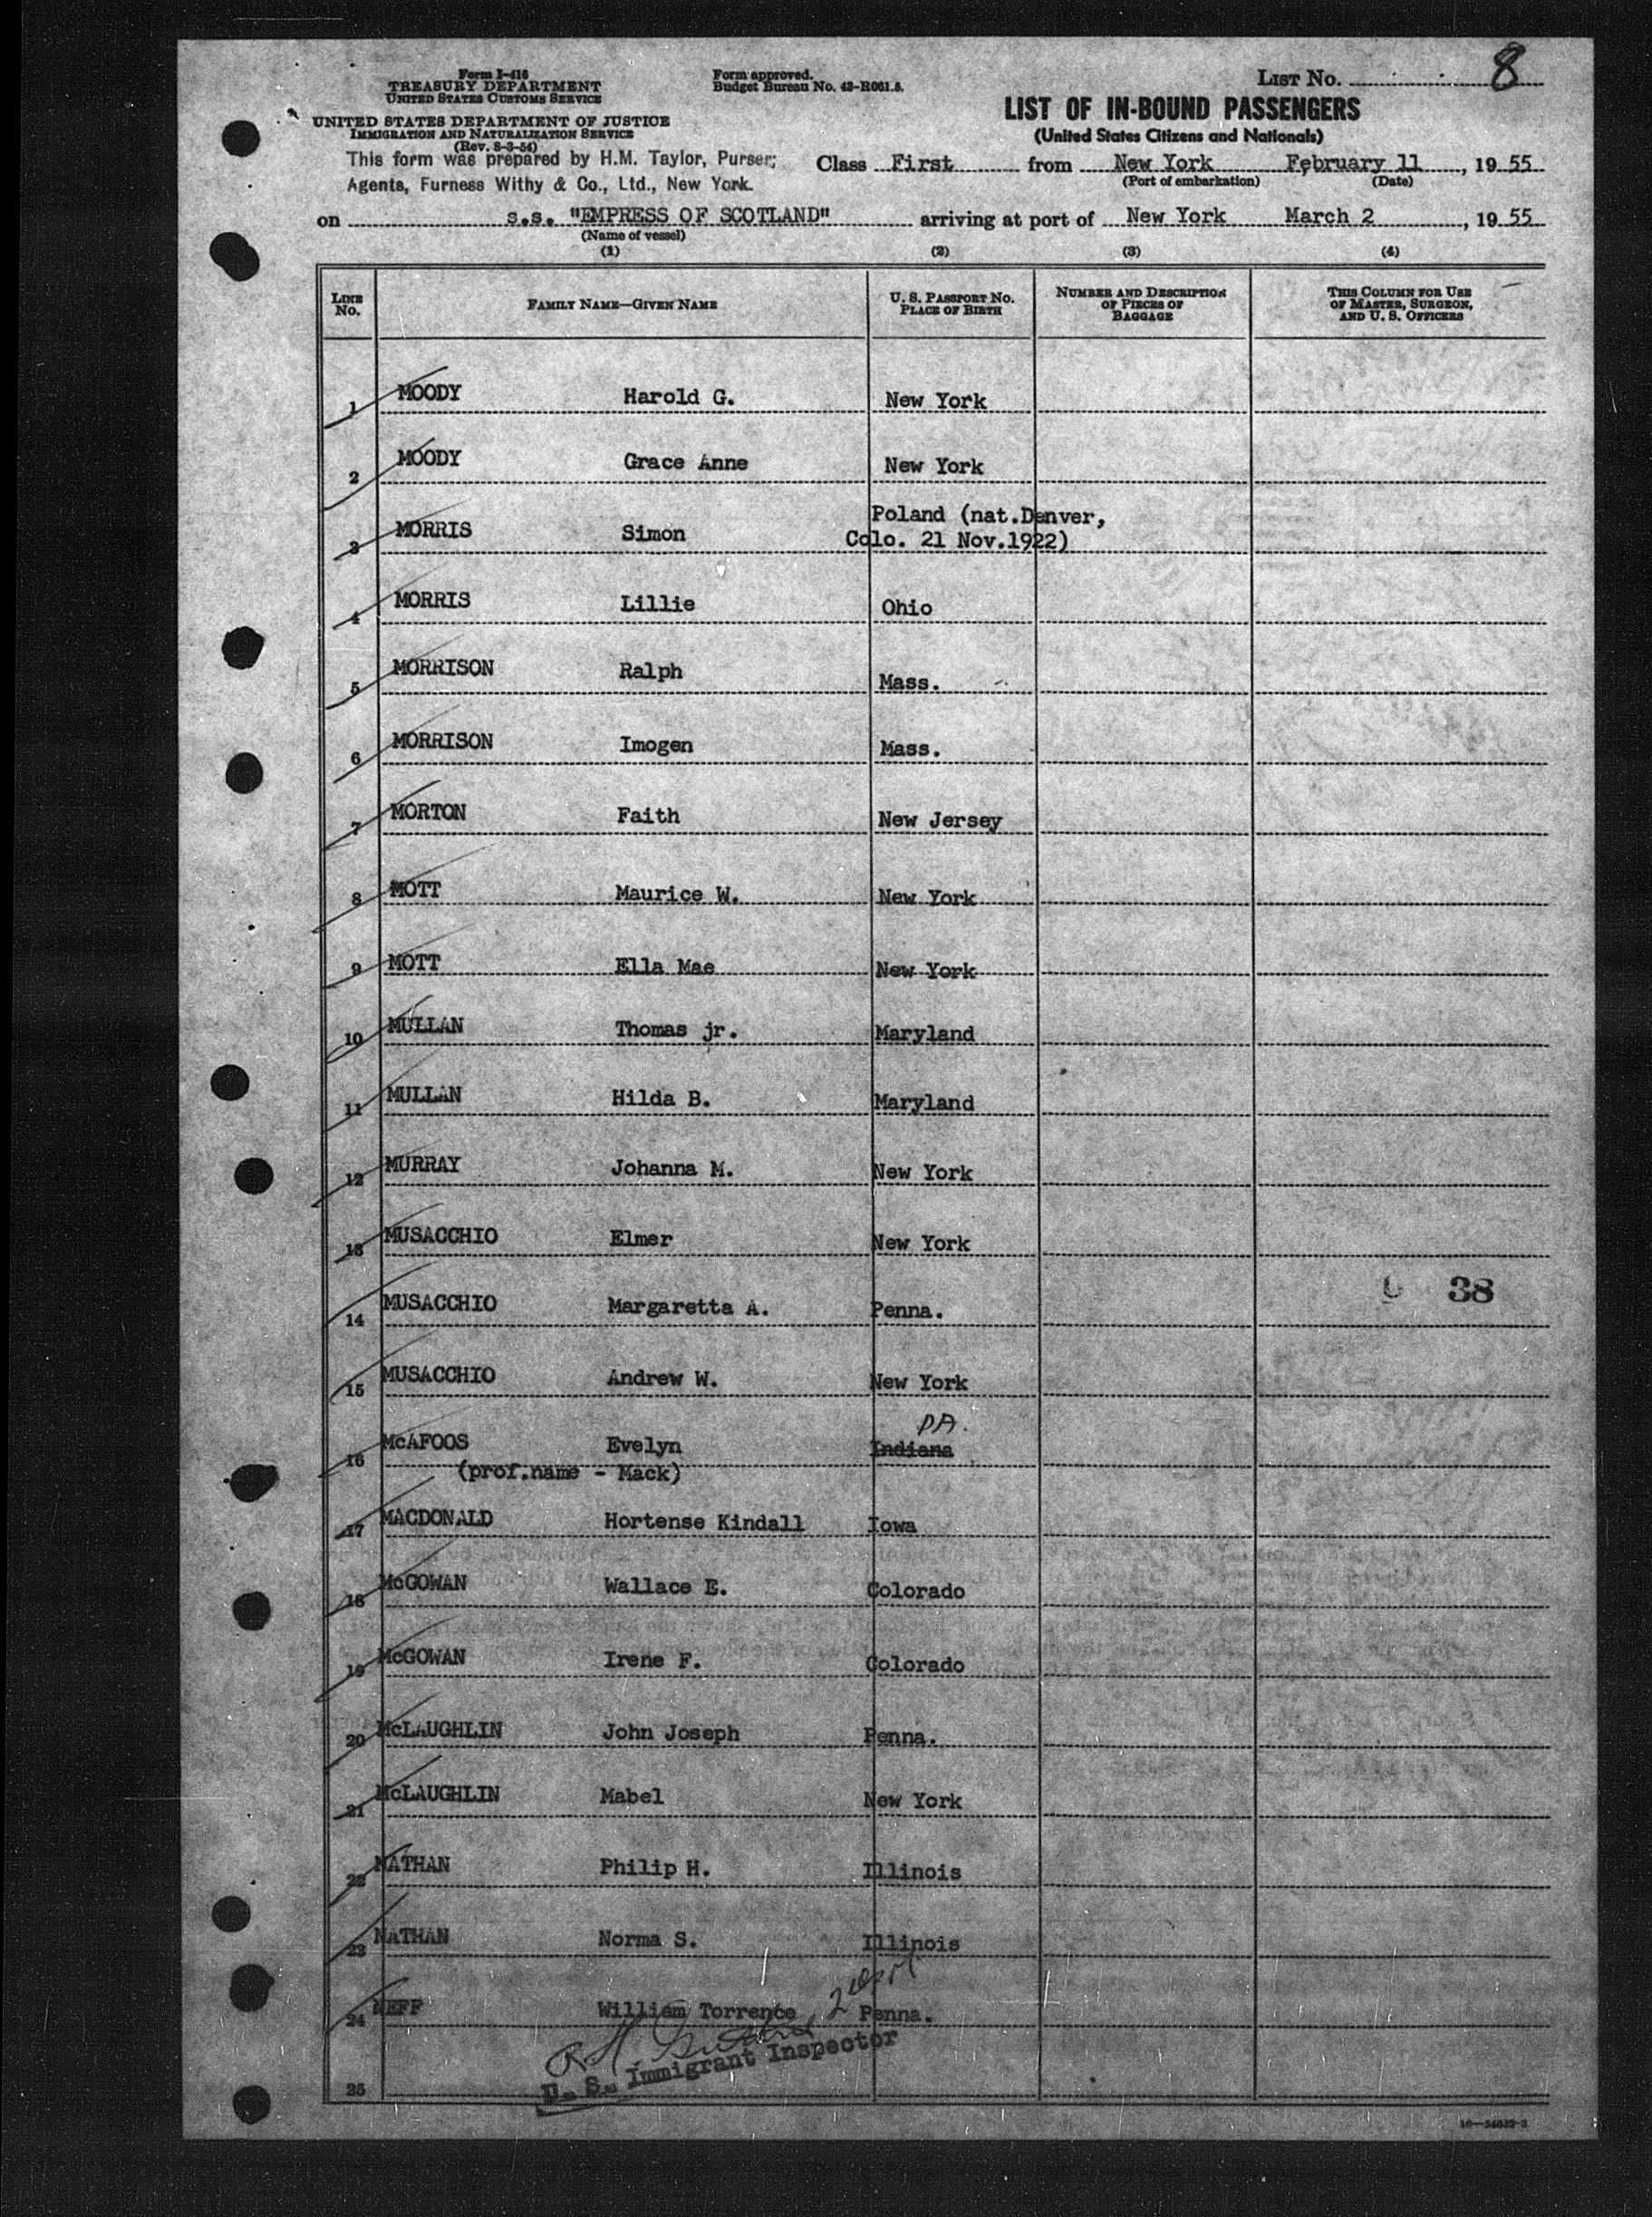 Form I-416
TREASURY DEPARTMENT
UNITED STATES CUSTOMS SERVICE
UNITED STATES DEPARTMENT OF JUSTICE
IMMIGRATION AND NATURALIZATION SERVICE
(Rev. 8-3-54)
Form approved.
Budget Bureau No. 43-R061.5.
LIST No. 8
LIST OF IN-BOUND PASSENGERS
(United States Citizens and Nationals)
This form was prepared by H.M. Taylor, Purser;
Agents, Furness Withy & Co., Ltd., New York.
Class First from New York February 11, 19 55
(Port of embarkation) (Date)
on s.s. "EMPRESS OF SCOTLAND" arriving at port of New York March 2, 19 55
(Name of vessel)
(1) (2) (3) (4)
LINE No. FAMILY NAME—GIVEN NAME U. S. PASSPORT No. PLACE OF BIRTH NUMBER AND DESCRIPTION OF PIECES OF BAGGAGE THIS COLUMN FOR USE OF MASTER, SURGEON, AND U. S. OFFICERS
1 MOODY Harold G. New York
2 MOODY Grace Anne New York
3 MORRIS Simon Poland (nat.Denver, Colo. 21 Nov.1922)
4 MORRIS Lillie Ohio
5 MORRISON Ralph Mass.
6 MORRISON Imogen Mass.
7 MORTON Faith New Jersey
8 MOTT Maurice W. New York
9 MOTT Ella Mae New York
10 MULLAN Thomas jr. Maryland
11 MULLAN Hilda B. Maryland
12 MURRAY Johanna M. New York
13 MUSACCHIO Elmer New York
38
14 MUSACCHIO Margaretta A. Penna.
15 MUSACCHIO Andrew W. New York
PA.
16 McAFOOS Evelyn Indiana
(prof.name - Mack)
17 MACDONALD Hortense Kindall Iowa
18 McGOWAN Wallace E. Colorado
19 McGOWAN Irene F. Colorado
20 McLAUGHLIN John Joseph Penna.
21 McLAUGHLIN Mabel New York
22 NATHAN Philip H. Illinois
23 NATHAN Norma S. Illinois
24 NEFF William Torrence Penna.
U. S. Immigrant Inspector
25